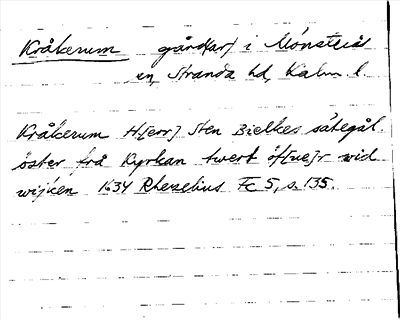 Kråkerum gård(ar) i Mönsterås
en, Stranda hd, Kalm. l.
Kråkerum H[err] Sten Bielkes sätegål.
öster frå Kyrkan twert öf[ue]r wid
wijken 1634 Rhezelius Fc 5, s. 135.